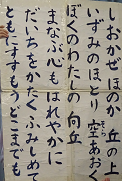 しおかぜほのか 丘の上
いずみのほとり 空あおく
そら
ぼくのわたしの 向丘
まなぶ心も はれやかに
だいちをかたく ふみしめて
ともにすすもう どこまでも